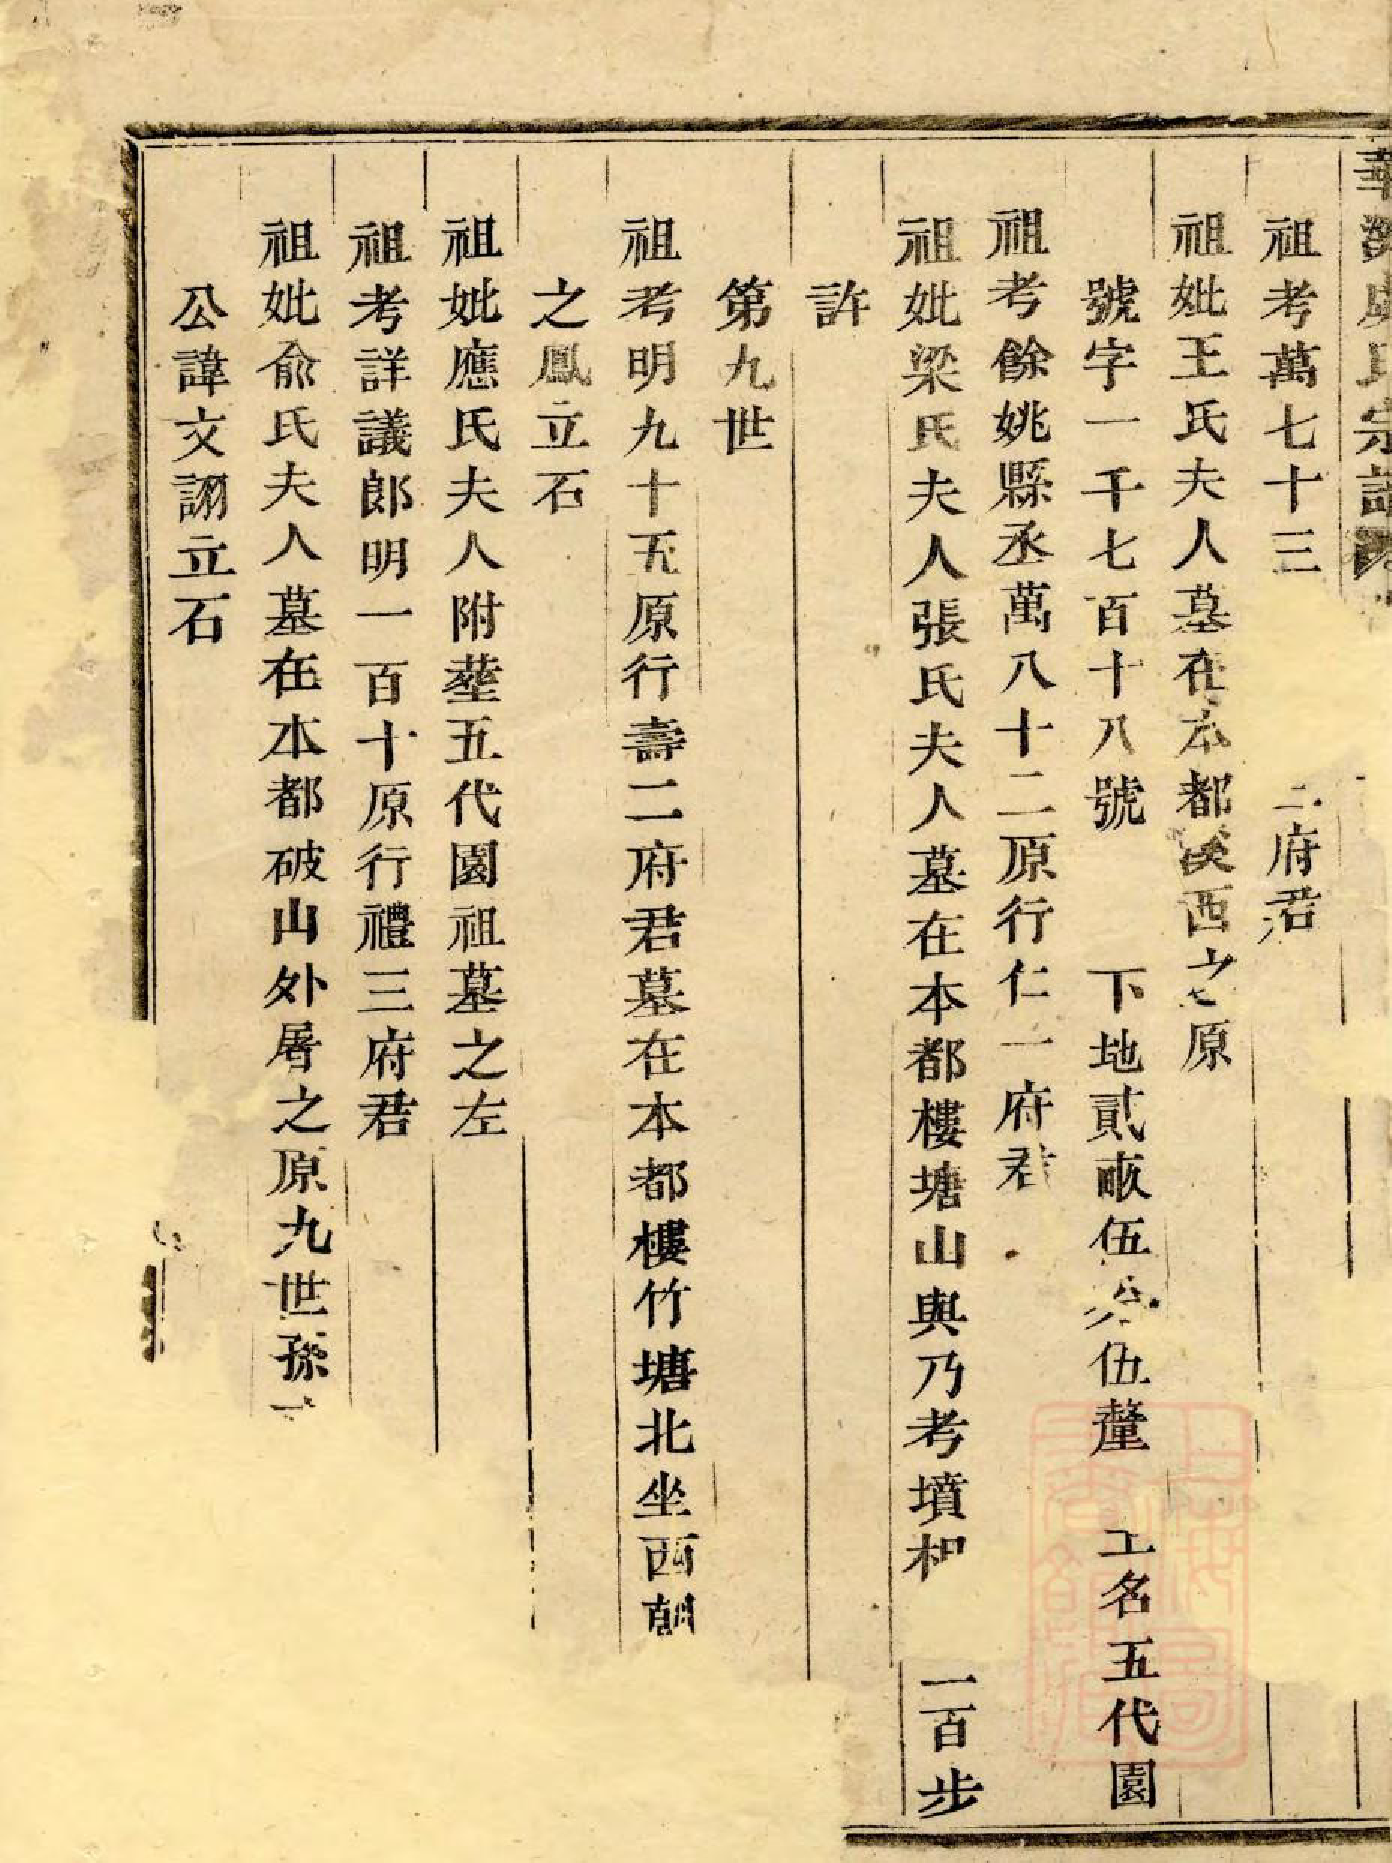 華溪虞氏宗譜
祖考萬七十三二府君
祖妣王氏夫人墓在本都溪西之原
號字一千七百十八號　下地貳畝伍分伍釐　土名五代園
祖考餘姚縣丞萬八十二原行仁一府君
祖妣梁氏夫人張氏夫人墓在本都樓塘山與乃考墳相一百步
許
第九世
祖考明九十五原行壽二府君墓在本都樓竹塘北坐西朝
之鳳立石
祖妣應氏夫人附塟五代園祖墓之左
祖考詳議郎明一百十原行禮三府君
祖妣俞氏夫人墓在本都破山外屠之原九世孫
公諱文詡立石